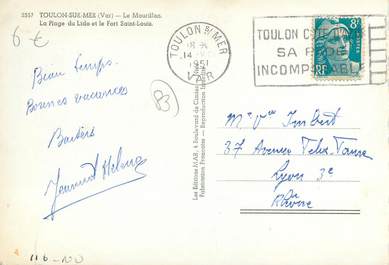 3557 TOULON-SUR-MER (Var) — Le Mourillon.
La Plage du Lido et le Fort Saint-Louis.
6 €
TOULON S/ MER
18 H
14
1951
VAR
TOULON
SA RADE
INCOMPARABLE
8F
RF
Beau temps.
Bonnes vacances
83
Baisers
Jeannine et Hélène
Les Editions MAR, 6 Boulevard de
Fabrication Française - Reproduction
Mme Vve Imbert
37 Avenue Félix-Faure
Lyon 3e
Rhône
116-100